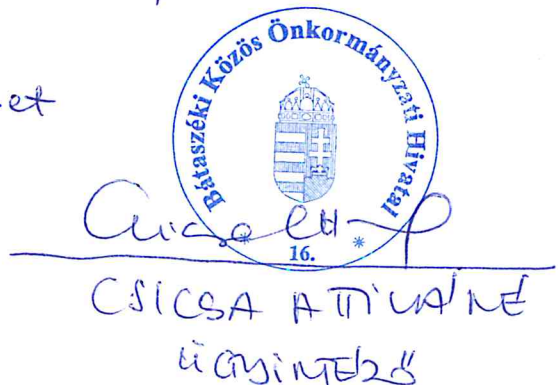 et
Bátaszéki Közös Önkormányzati Hivatal
16. *
CSICSA ATTILÁNÉ
ÜGYINTÉZŐ